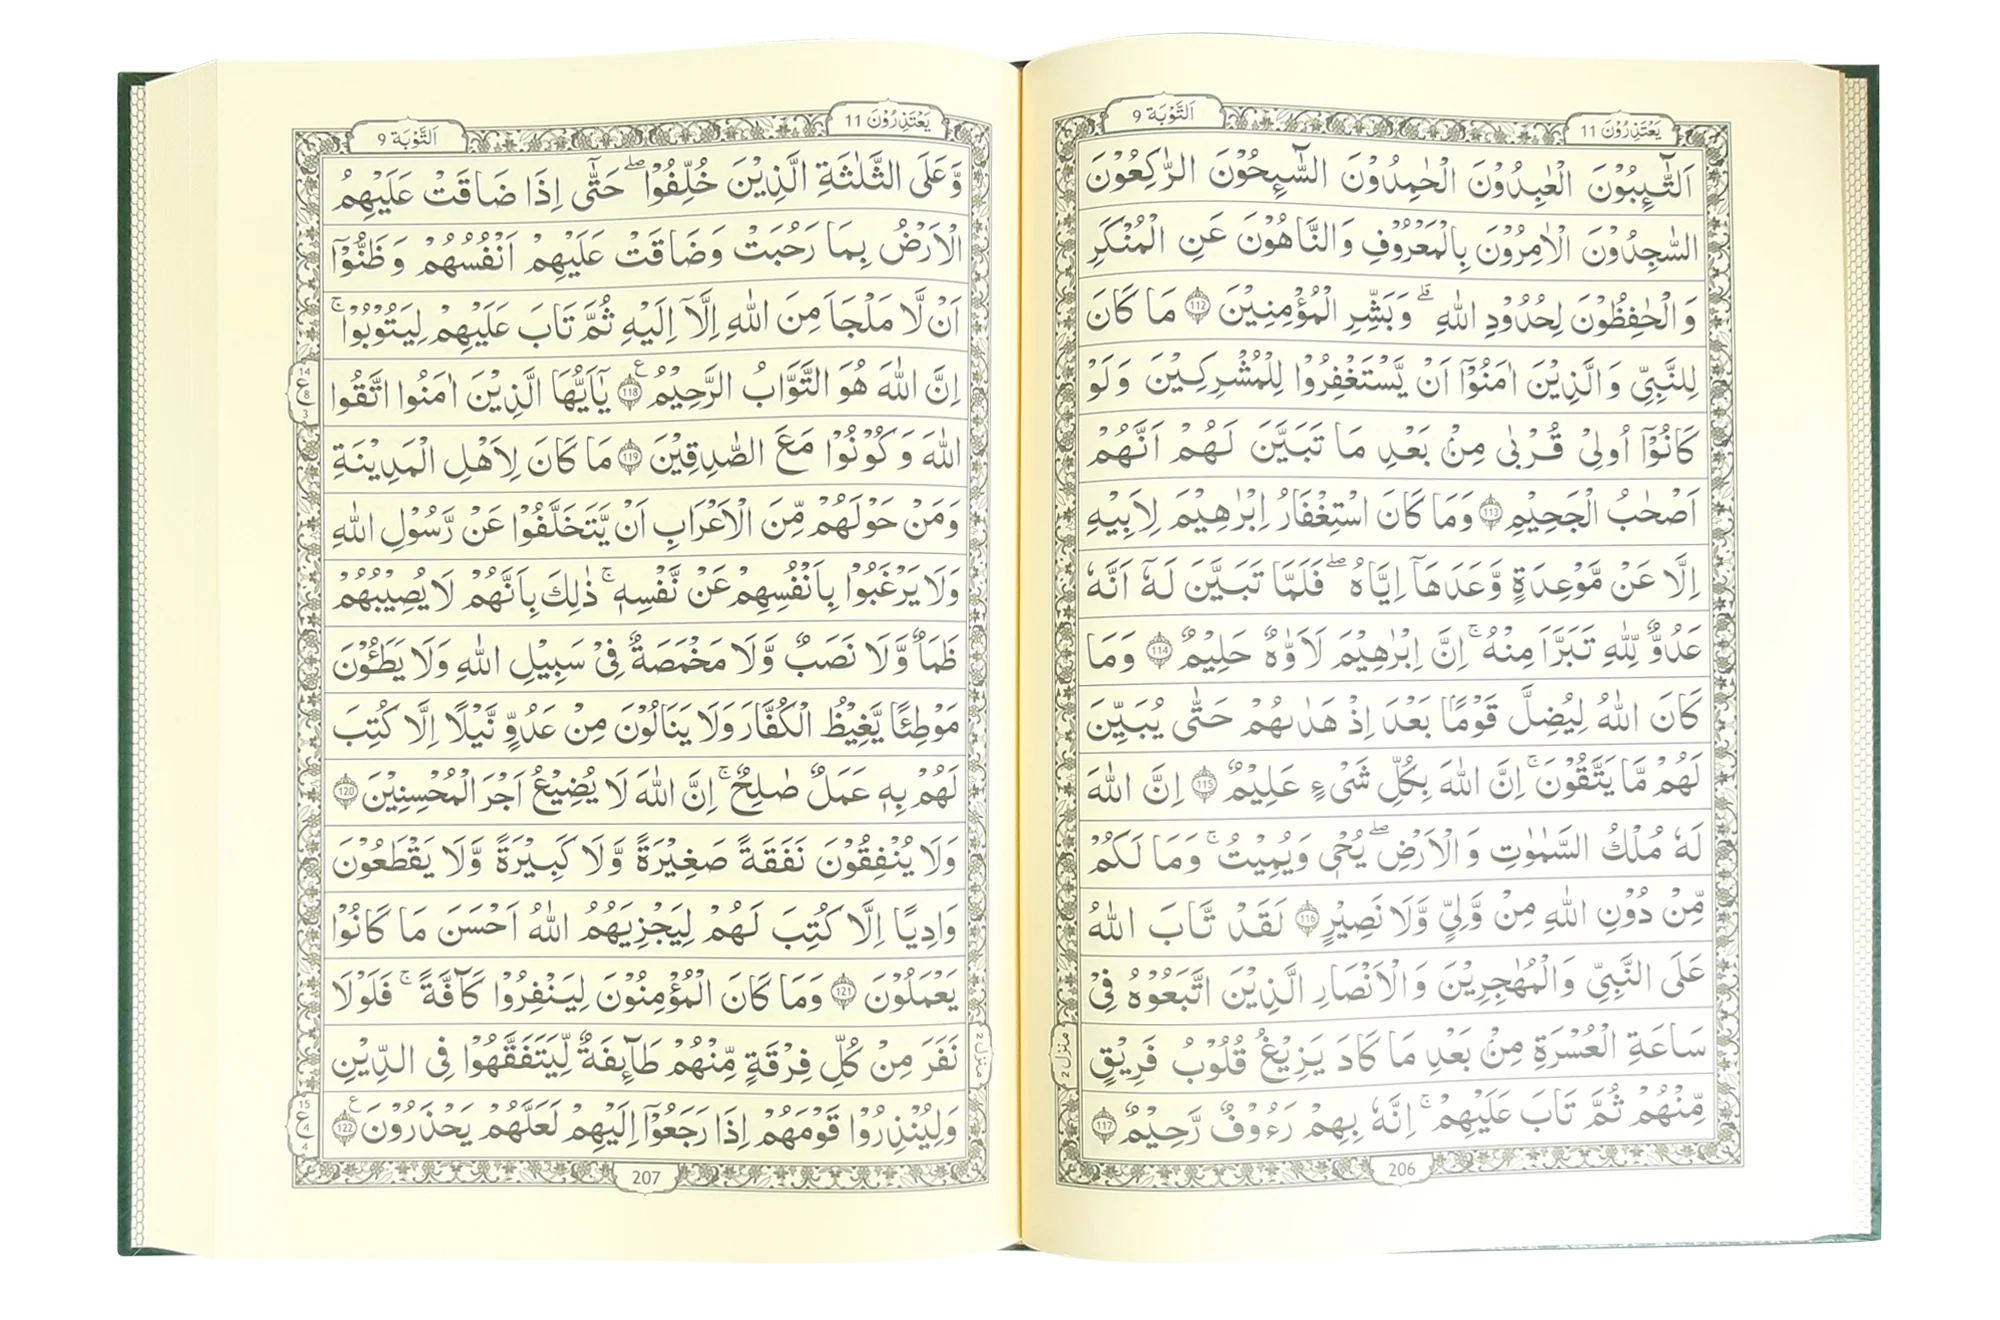 يَعْتَذِرُوْنَ 11
اَلتَّوْبَة 9
اَلتَّآئِبُوْنَ الْعٰبِدُوْنَ الْحٰمِدُوْنَ السَّآئِحُوْنَ الرّٰكِعُوْنَ
السّٰجِدُوْنَ الْاٰمِرُوْنَ بِالْمَعْرُوْفِ وَالنَّاهُوْنَ عَنِ الْمُنْكَرِ
وَالْحٰفِظُوْنَ لِحُدُوْدِ اللّٰهِ ؕ وَبَشِّرِ الْمُؤْمِنِيْنَ ﴿112﴾ مَا كَانَ
لِلنَّبِيِّ وَالَّذِيْنَ اٰمَنُوْۤا اَنْ يَّسْتَغْفِرُوْا لِلْمُشْرِكِيْنَ وَلَوْ
كَانُوْۤا اُولِيْ قُرْبٰى مِنْۢ بَعْدِ مَا تَبَيَّنَ لَهُمْ اَنَّهُمْ
اَصْحٰبُ الْجَحِيْمِ ﴿113﴾ وَمَا كَانَ اسْتِغْفَارُ اِبْرٰهِيْمَ لِاَبِيْهِ
اِلَّا عَنْ مَّوْعِدَةٍ وَّعَدَهَاۤ اِيَّاهُ ۖ فَلَمَّا تَبَيَّنَ لَهٗۤ اَنَّهٗ
عَدُوٌّ لِّلّٰهِ تَبَرَّاَ مِنْهُ ۚ اِنَّ اِبْرٰهِيْمَ لَاَوَّاهٌ حَلِيْمٌ ﴿114﴾ وَمَا
كَانَ اللّٰهُ لِيُضِلَّ قَوْمًۢا بَعْدَ اِذْ هَدٰىهُمْ حَتّٰى يُبَيِّنَ
لَهُمْ مَّا يَتَّقُوْنَ ۚ اِنَّ اللّٰهَ بِكُلِّ شَيْءٍ عَلِيْمٌ ﴿115﴾ اِنَّ اللّٰهَ
لَهٗ مُلْكُ السَّمٰوٰتِ وَالْاَرْضِ ۖ يُحْيٖ وَيُمِيْتُ ۚ وَمَا لَكُمْ
مِّنْ دُوْنِ اللّٰهِ مِنْ وَّلِيٍّ وَّلَا نَصِيْرٍ ﴿116﴾ لَقَدْ تَّابَ اللّٰهُ
عَلَى النَّبِيِّ وَالْمُهٰجِرِيْنَ وَالْاَنْصَارِ الَّذِيْنَ اتَّبَعُوْهُ فِيْ
سَاعَةِ الْعُسْرَةِ مِنْۢ بَعْدِ مَا كَادَ يَزِيْغُ قُلُوْبُ فَرِيْقٍ
مِّنْهُمْ ثُمَّ تَابَ عَلَيْهِمْ ۚ اِنَّهٗ بِهِمْ رَءُوْفٌ رَّحِيْمٌ ﴿117﴾
منزل 2
206
يَعْتَذِرُوْنَ 11
اَلتَّوْبَة 9
وَّعَلَى الثَّلٰثَةِ الَّذِيْنَ خُلِّفُوْا ۖ حَتّٰۤى اِذَا ضَاقَتْ عَلَيْهِمُ
الْاَرْضُ بِمَا رَحُبَتْ وَضَاقَتْ عَلَيْهِمْ اَنْفُسُهُمْ وَظَنُّوْۤا
اَنْ لَّا مَلْجَاَ مِنَ اللّٰهِ اِلَّاۤ اِلَيْهِ ثُمَّ تَابَ عَلَيْهِمْ لِيَتُوْبُوْا ۚ
اِنَّ اللّٰهَ هُوَ التَّوَّابُ الرَّحِيْمُ ﴿118﴾ يٰۤاَيُّهَا الَّذِيْنَ اٰمَنُوا اتَّقُوا
اللّٰهَ وَكُوْنُوْا مَعَ الصّٰدِقِيْنَ ﴿119﴾ مَا كَانَ لِاَهْلِ الْمَدِيْنَةِ
وَمَنْ حَوْلَهُمْ مِّنَ الْاَعْرَابِ اَنْ يَّتَخَلَّفُوْا عَنْ رَّسُوْلِ اللّٰهِ
وَلَا يَرْغَبُوْا بِاَنْفُسِهِمْ عَنْ نَّفْسِهٖ ۚ ذٰلِكَ بِاَنَّهُمْ لَا يُصِيْبُهُمْ
ظَمَاٌ وَّلَا نَصَبٌ وَّلَا مَخْمَصَةٌ فِيْ سَبِيْلِ اللّٰهِ وَلَا يَطَـُٔوْنَ
مَوْطِئًا يَّغِيْظُ الْكُفَّارَ وَلَا يَنَالُوْنَ مِنْ عَدُوٍّ نَّيْلًا اِلَّا كُتِبَ
لَهُمْ بِهٖ عَمَلٌ صٰلِحٌ ۚ اِنَّ اللّٰهَ لَا يُضِيْعُ اَجْرَ الْمُحْسِنِيْنَ ﴿120﴾
وَلَا يُنْفِقُوْنَ نَفَقَةً صَغِيْرَةً وَّلَا كَبِيْرَةً وَّلَا يَقْطَعُوْنَ
وَادِيًا اِلَّا كُتِبَ لَهُمْ لِيَجْزِيَهُمُ اللّٰهُ اَحْسَنَ مَا كَانُوْا
يَعْمَلُوْنَ ﴿121﴾ وَمَا كَانَ الْمُؤْمِنُوْنَ لِيَنْفِرُوْا كَآفَّةً ۚ فَلَوْلَا
نَفَرَ مِنْ كُلِّ فِرْقَةٍ مِّنْهُمْ طَآئِفَةٌ لِّيَتَفَقَّهُوْا فِي الدِّيْنِ
وَلِيُنْذِرُوْا قَوْمَهُمْ اِذَا رَجَعُوْۤا اِلَيْهِمْ لَعَلَّهُمْ يَحْذَرُوْنَ ﴿122﴾
منزل 2
14
ع
8
3
15
ع
4
4
207